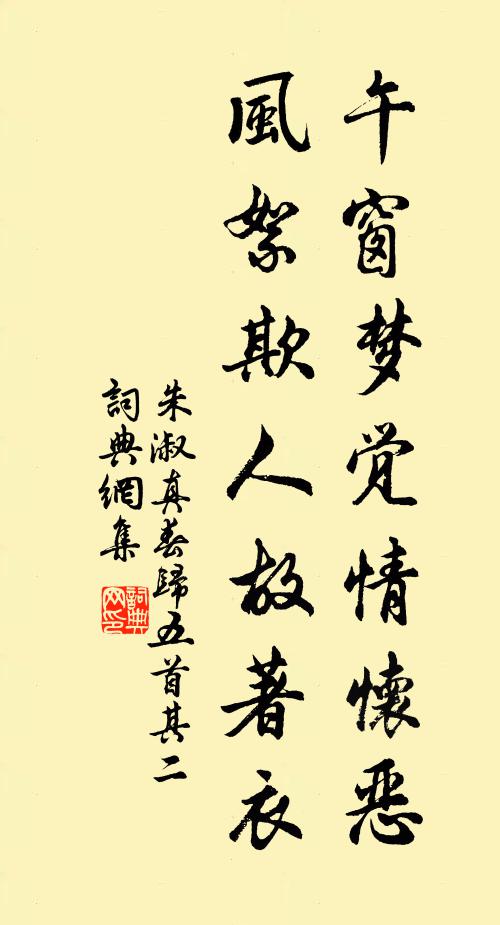 午窗梦觉情懷恶
風絮欺人故著衣
朱淑真春歸五首其二
詞典網集
詞典网印